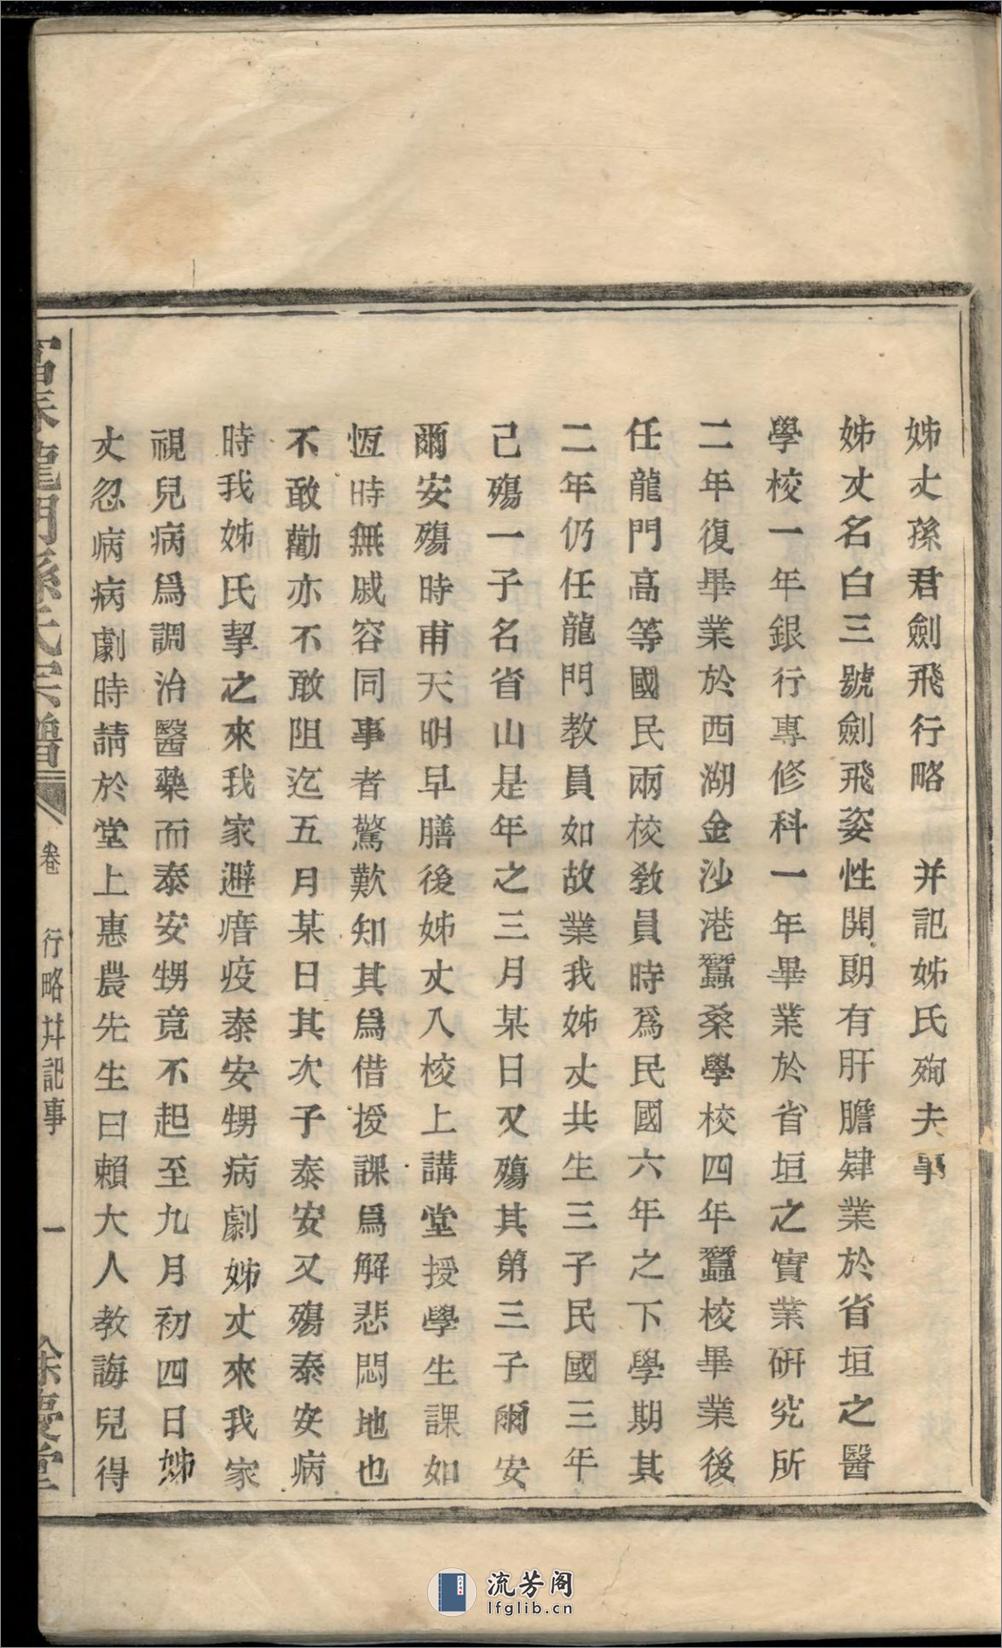 姊丈孫君劍飛行略　并記姊氏殉夫事
姊丈名白三號劍飛姿性開朗有肝膽肄業於省垣之醫
學校一年銀行專修科一年畢業於省垣之實業研究所
二年復畢業於西湖金沙港蠶桑學校四年蠶校畢業後
任龍門高等國民兩校教員時爲民國六年之下學期其
二年仍任龍門教員如故業我姊丈共生三子民國三年
己殤一子名省山是年之三月某日又殤其第三子爾安
爾安殤時甫天明早膳後姊丈入校上講堂授學生課如
恆時無戚容同事者驚歎知其爲借授課爲解悲悶地也
不敢勸亦不敢阻迄五月某日其次子泰安又殤泰安病
時我姊氏挈之來我家避瘄疫泰安甥病劇姊丈來我家
視兒病爲調治醫藥而泰安甥竟不起至九月初四日姊
丈忽病病劇時請於堂上惠農先生曰賴大人教誨兒得
富春龍門孫氏宗譜
卷
行略幷記事
一
餘慶堂
流芳阁
lfglib.cn